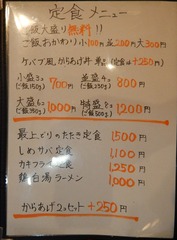 定食メニュー
ご飯大盛り無料!!
ご飯おかわり小100円並200円大300円
ケバブ風からあげ丼 単品(定食は+250円)
小盛3コ 700円 並盛4コ 800円
(ご飯150g) (ご飯250g)
大盛6コ 1,000円 特盛8コ 1,200円
(ご飯350g) (ご飯500g)
最上どりのたたき定食 1500円
しめサバ定食 1,100円
カキフライ定食 1,250円
鶏白湯ラーメン 1,000円
からあげ2コセット +250円